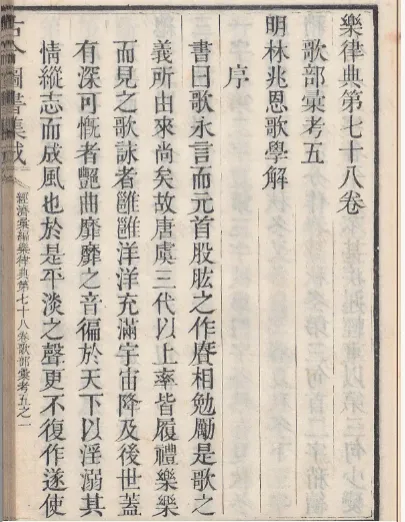 樂律典第七十八卷
歌部彙考五
明林兆恩歌學解
序
書曰歌永言而元首股肱之作賡相勉勵是歌之
義所由來尚矣故唐虞三代以上率皆履禮樂樂
而見之歌詠者雝雝洋洋充滿宇宙降及後世蓋
有深可慨者豔曲靡靡之音徧於天下以淫溺其
情縱志而成風也於是平淡之聲更不復作遂使
古今圖書集成
經濟彙編樂律典第七十八卷歌部彙考五之一